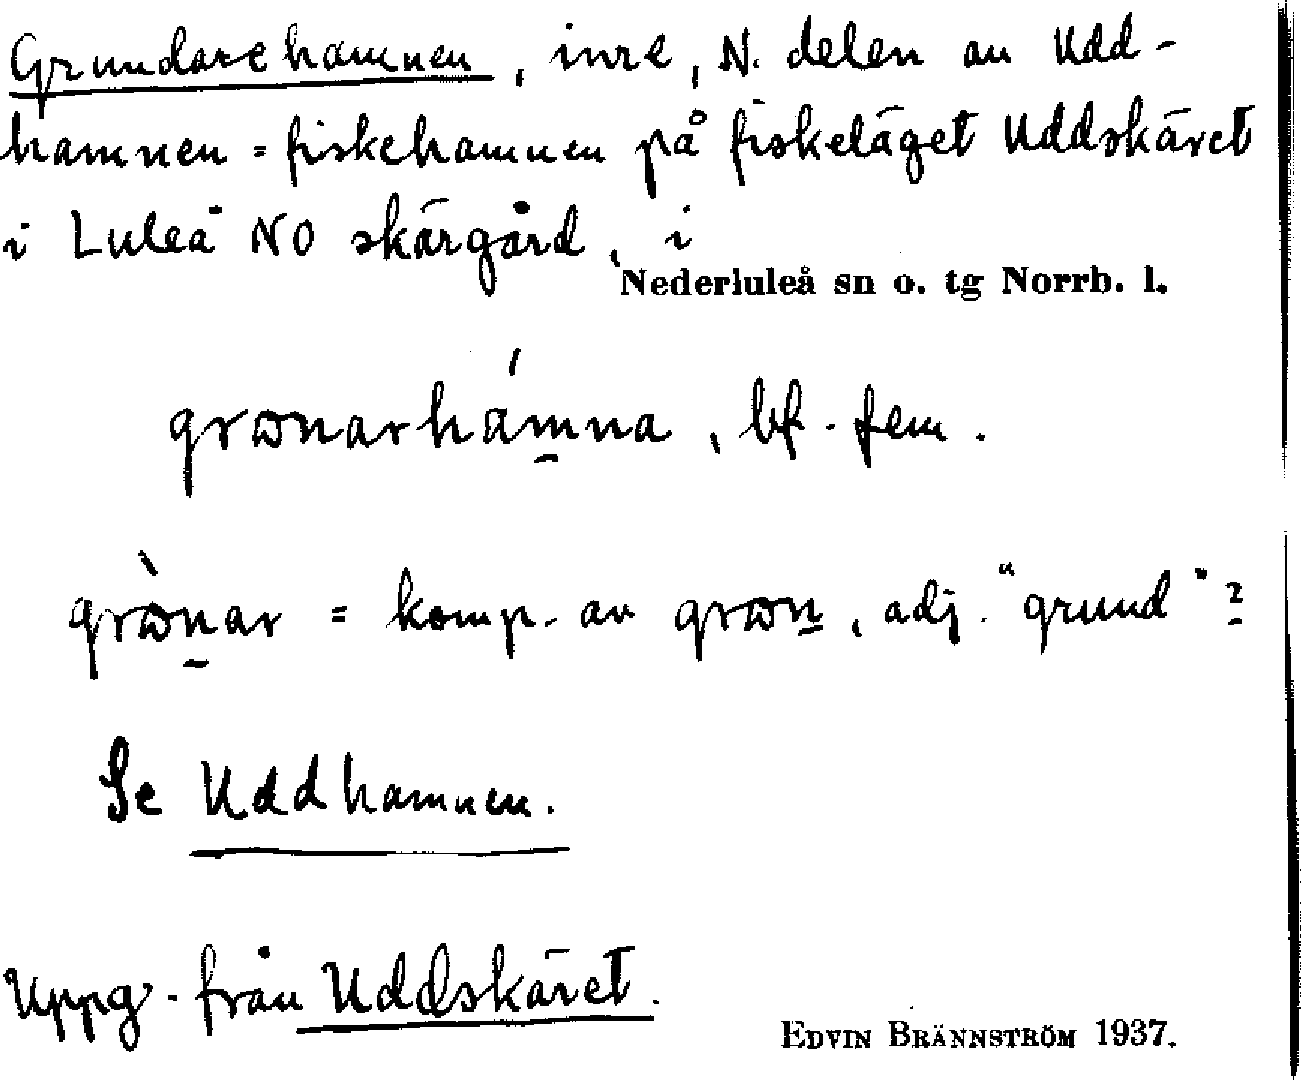 Grundarehamnen, inre, N. delen av Udd-
hamnen = fiskehamnen på fiskeläget Uddskäret
i Luleå NO skärgård, i
Nederluleå sn o. tg Norrb. l.
grωnarhámna, bf. fem.
grὼnar = komp. av grωn, adj. "grund"?
Se Uddhamnen.
Uppg. från Uddskäret.
EDVIN BRÄNNSTRÖM 1937.